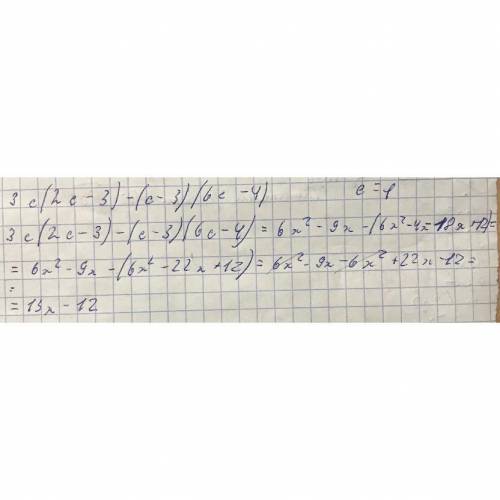 3c(2c-3)-(c-3)(6c-4)
3c(2c-3)-(c-3)(6c-4) = 6x²-9x-(6x²-4x-18x+12)=
= 6x²-9x-(6x²-22x+12)= 6x²-9x-6x²+22x-12=
= 13x-12